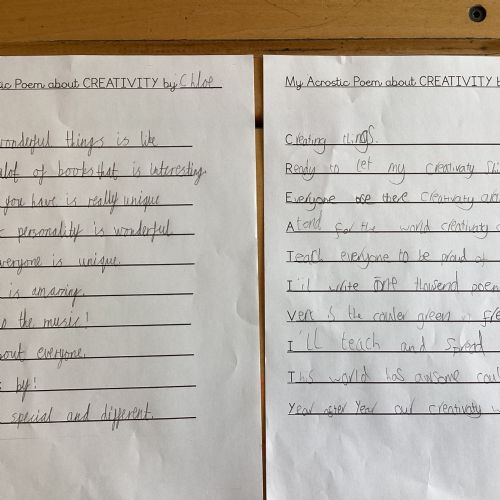 tic Poem about CREATIVITY by Chloe
wonderful things is like
alot of books that is interesting.
you have is really unique
personality is wonderful
everyone is unique.
is amazing.
to the music!
bout everyone.
by!
special and different.
My Acrostic Poem about CREATIVITY b
Creating things.
Ready to let my creativaty Shi
Everyone use there Creativaty
Atend for the world creativity
Teach everyone to be proud of
I'll write one thousend poem
Vert is the couler green in fre
I'll teach and spread
This world has awsome coul
Year after Year our creativaty w